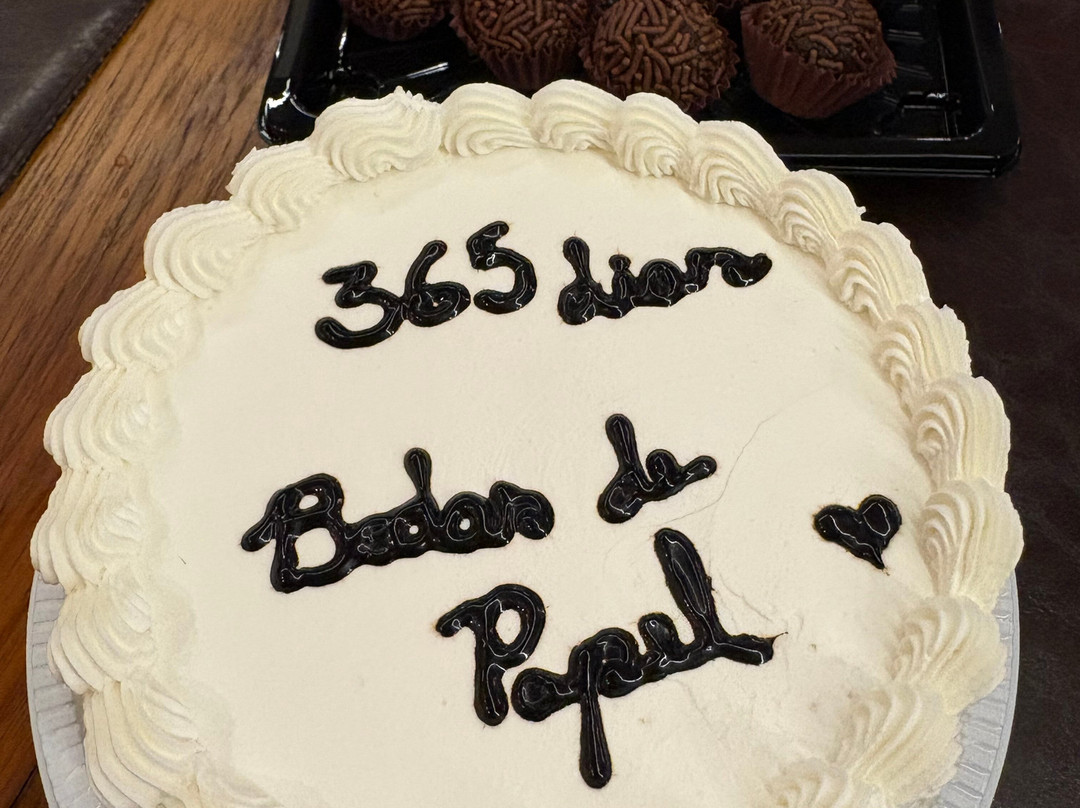 365 dias
Bodas de
Papel